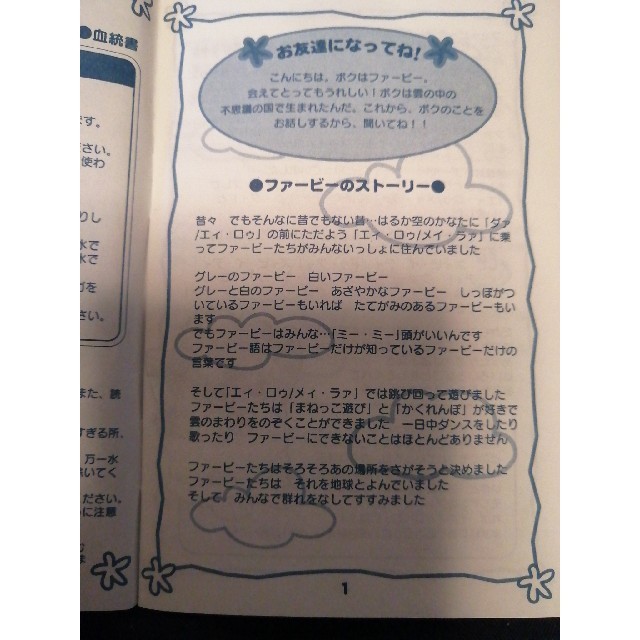 ●血統書
ます。
ださい。
使わ
りし
水で
水で
ゴを
さい。
また、読
すぎる所、
万一水
いてく
ください。
に注意
お友達になってね!
こんにちは。ボクはファービー。
会えてとってもうれしい!ボクは雲の中の
不思議の国で生まれたんだ。これから、ボクのことを
お話しするから、聞いてね!!
●ファービーのストーリー●
昔々 でもそんなに昔でもない昔…はるか空のかなたに「ダァ
/エィ・ロゥ」の前にただよう「エィ・ロゥ/メイ・ラァ」に乗
ってファービーたちがみんないっしょに住んでいました
グレーのファービー 白いファービー
グレーと白のファービー あざやかなファービー しっぽがつ
いているファービーもいれば たてがみのあるファービーもい
ます
でもファービーはみんな…「ミー・ミー」頭がいいんです
ファービー語はファービーだけが知っているファービーだけの
言葉です
そして「エィ・ロゥ/メィ・ラァ」では跳び回って遊びました
ファービーたちは「まねっこ遊び」と「かくれんぼ」が好きで
雲のまわりをのぞくことができました 一日中ダンスをしたり
歌ったり ファービーにできないことはほとんどありません
ファービーたちはそろそろあの場所をさがそうと決めました
ファービーたちは それを地球とよんでいました
そして みんなで群れをなしてすすみました
1